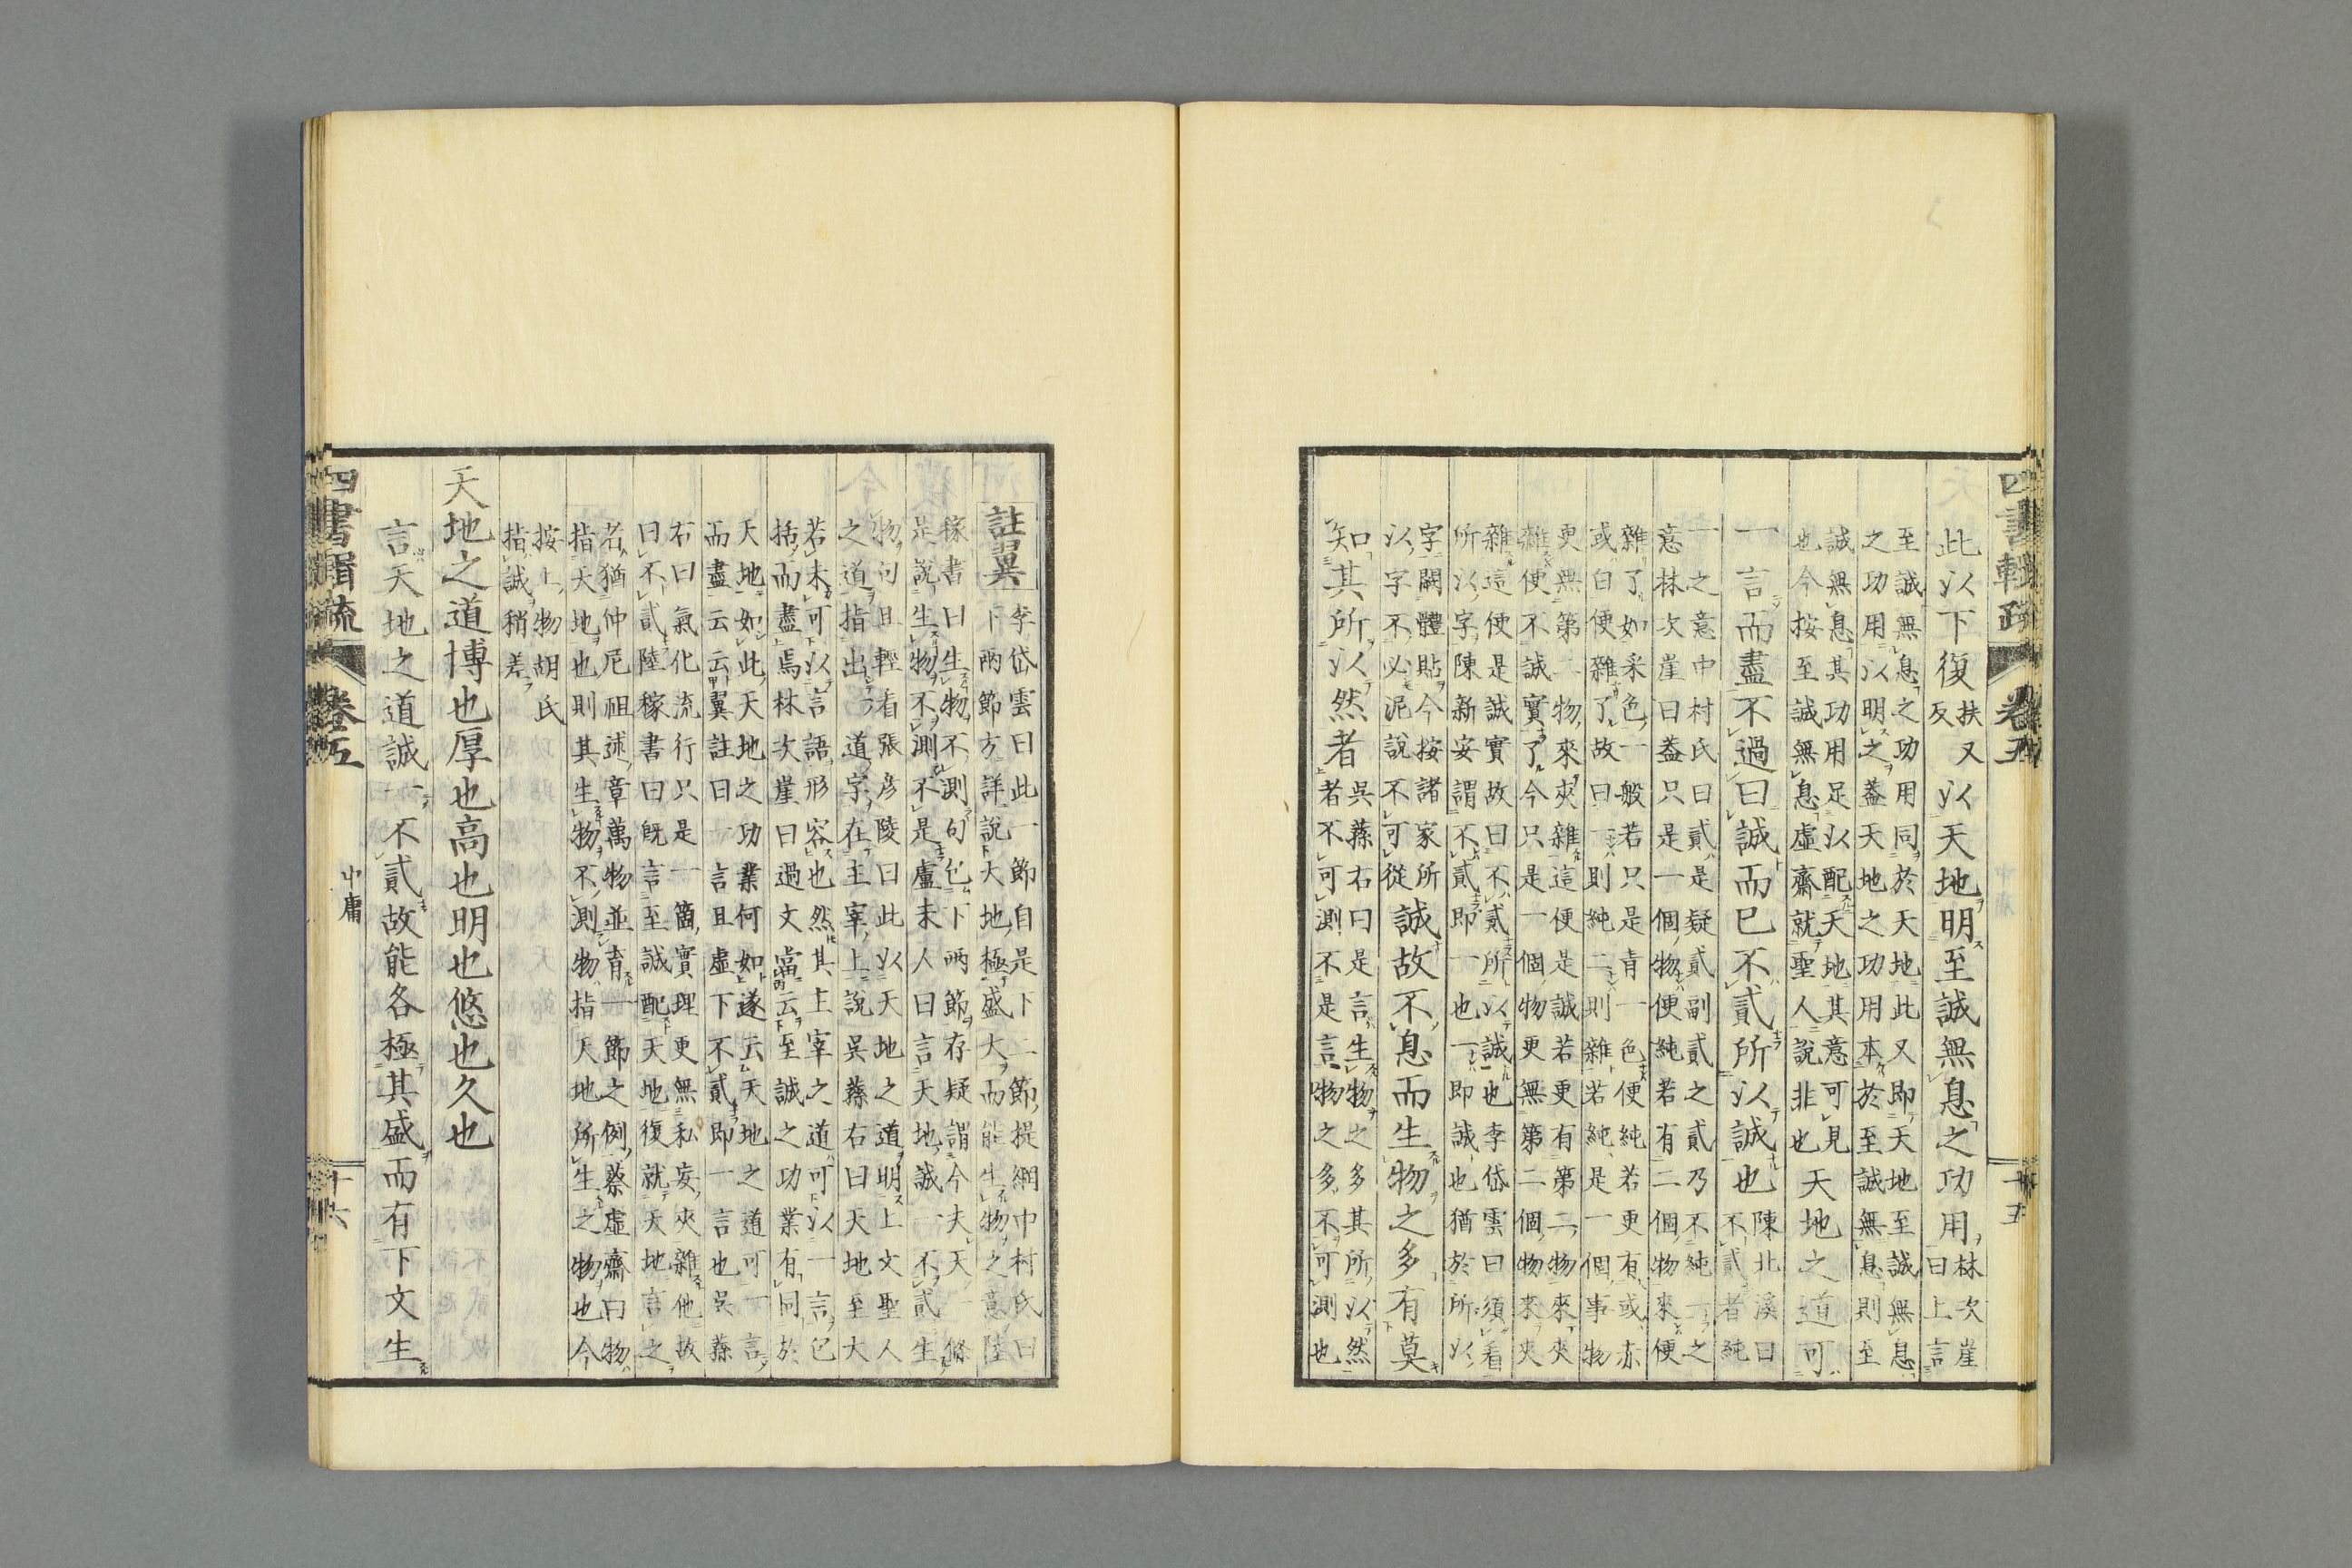 四書輯疏 卷五 十五
此以下復扶又反以天地明至誠無息之功用林次崖曰上言
至誠無息之功用同於天地此又即天地至誠無息
之功用以明之蓋天地之功用本於至誠無息則至
誠無息其功用足以配天地其意可見
也今按至誠無息虛齋就聖人說非也天地之道可
一言而盡不過曰誠而已不貳所以誠也陳北溪曰
不貳者純
一之意中村氏曰貳是疑貳副貳之貳乃不純一之
意林次崖曰蓋只是一個物便純若有二個物來便
雜了如采色一般若只是青一色便純若更有或赤
或白便雜了故曰一則純二則雜若純是一個事物
更無第二物來夾雜這便是誠若更有第二物來夾
雜便不誠實了今只是一個物更無第二個物來夾
雜這便是誠實故曰不貳所以誠也李岱雲曰須看
所以字陳新安謂不貳即一也一即誠也猶於所以
字闕體貼今按諸家所
以字不必泥說不可從誠故不息而生物之多有莫
知其所以然者吳蓀右曰是言生物之多其所以然
者不可測不是言物之多不可測也
註翼李岱雲曰此一節自是下二節提綱中村氏曰
下兩節方詳說大地極盛大而能生物之意陸
稼書曰生物不測句包下兩節存疑謂今夫天一條
是說生物不測不是盧未人曰言天地誠一不貳生
物句且輕看張彥陵曰此以天地之道明上文聖人
之道指出道字在主宰上說吳蓀右曰天地至大
若未可以言語形容也然其主宰之道可以一言包
括而盡焉林次崖曰過文當云至誠之功業有同於
天地如此天地之功業何如遂云天地之道可一言
而盡云云翼註曰一言且虛下不貳即一言也吳蓀
右曰氣化流行只是一箇實理更無私妄夾雜他故
曰不貳陸稼書曰既言至誠配天地復就天地言之
者猶仲尼祖述章萬物並育一節之例蔡虛齋曰物
指天地也則其生物不測物指天地所生之物也今
按上物胡氏
指誠稍差
天地之道博也厚也高也明也悠也久也
言天地之道誠一不貳故能各極其盛而有下文生
四書輯疏 卷五 中庸 十六